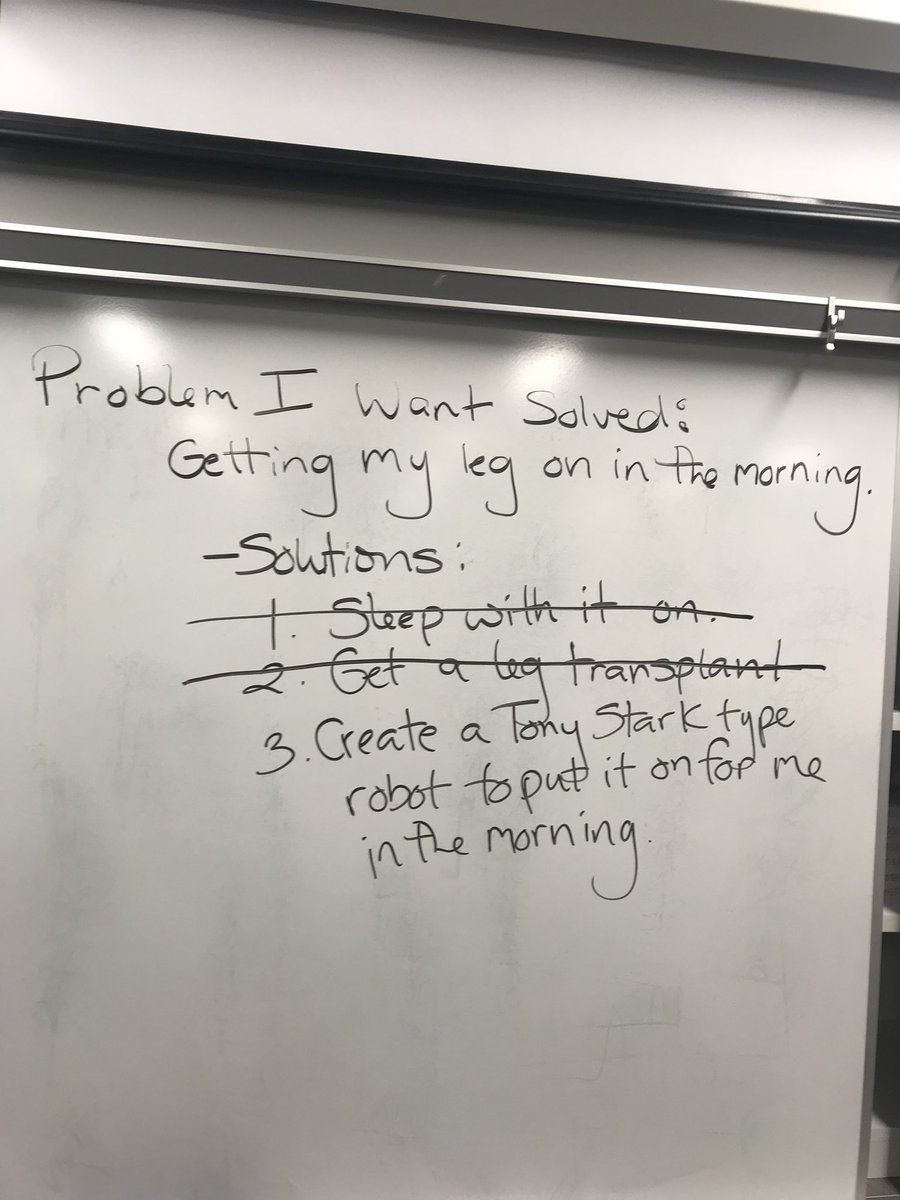 Problem I Want Solved:
Getting my leg on in the morning.
-Solutions:
1. Sleep with it on.
2. Get a leg transplant
3. Create a Tony Stark type
robot to put it on for me
in the morning.